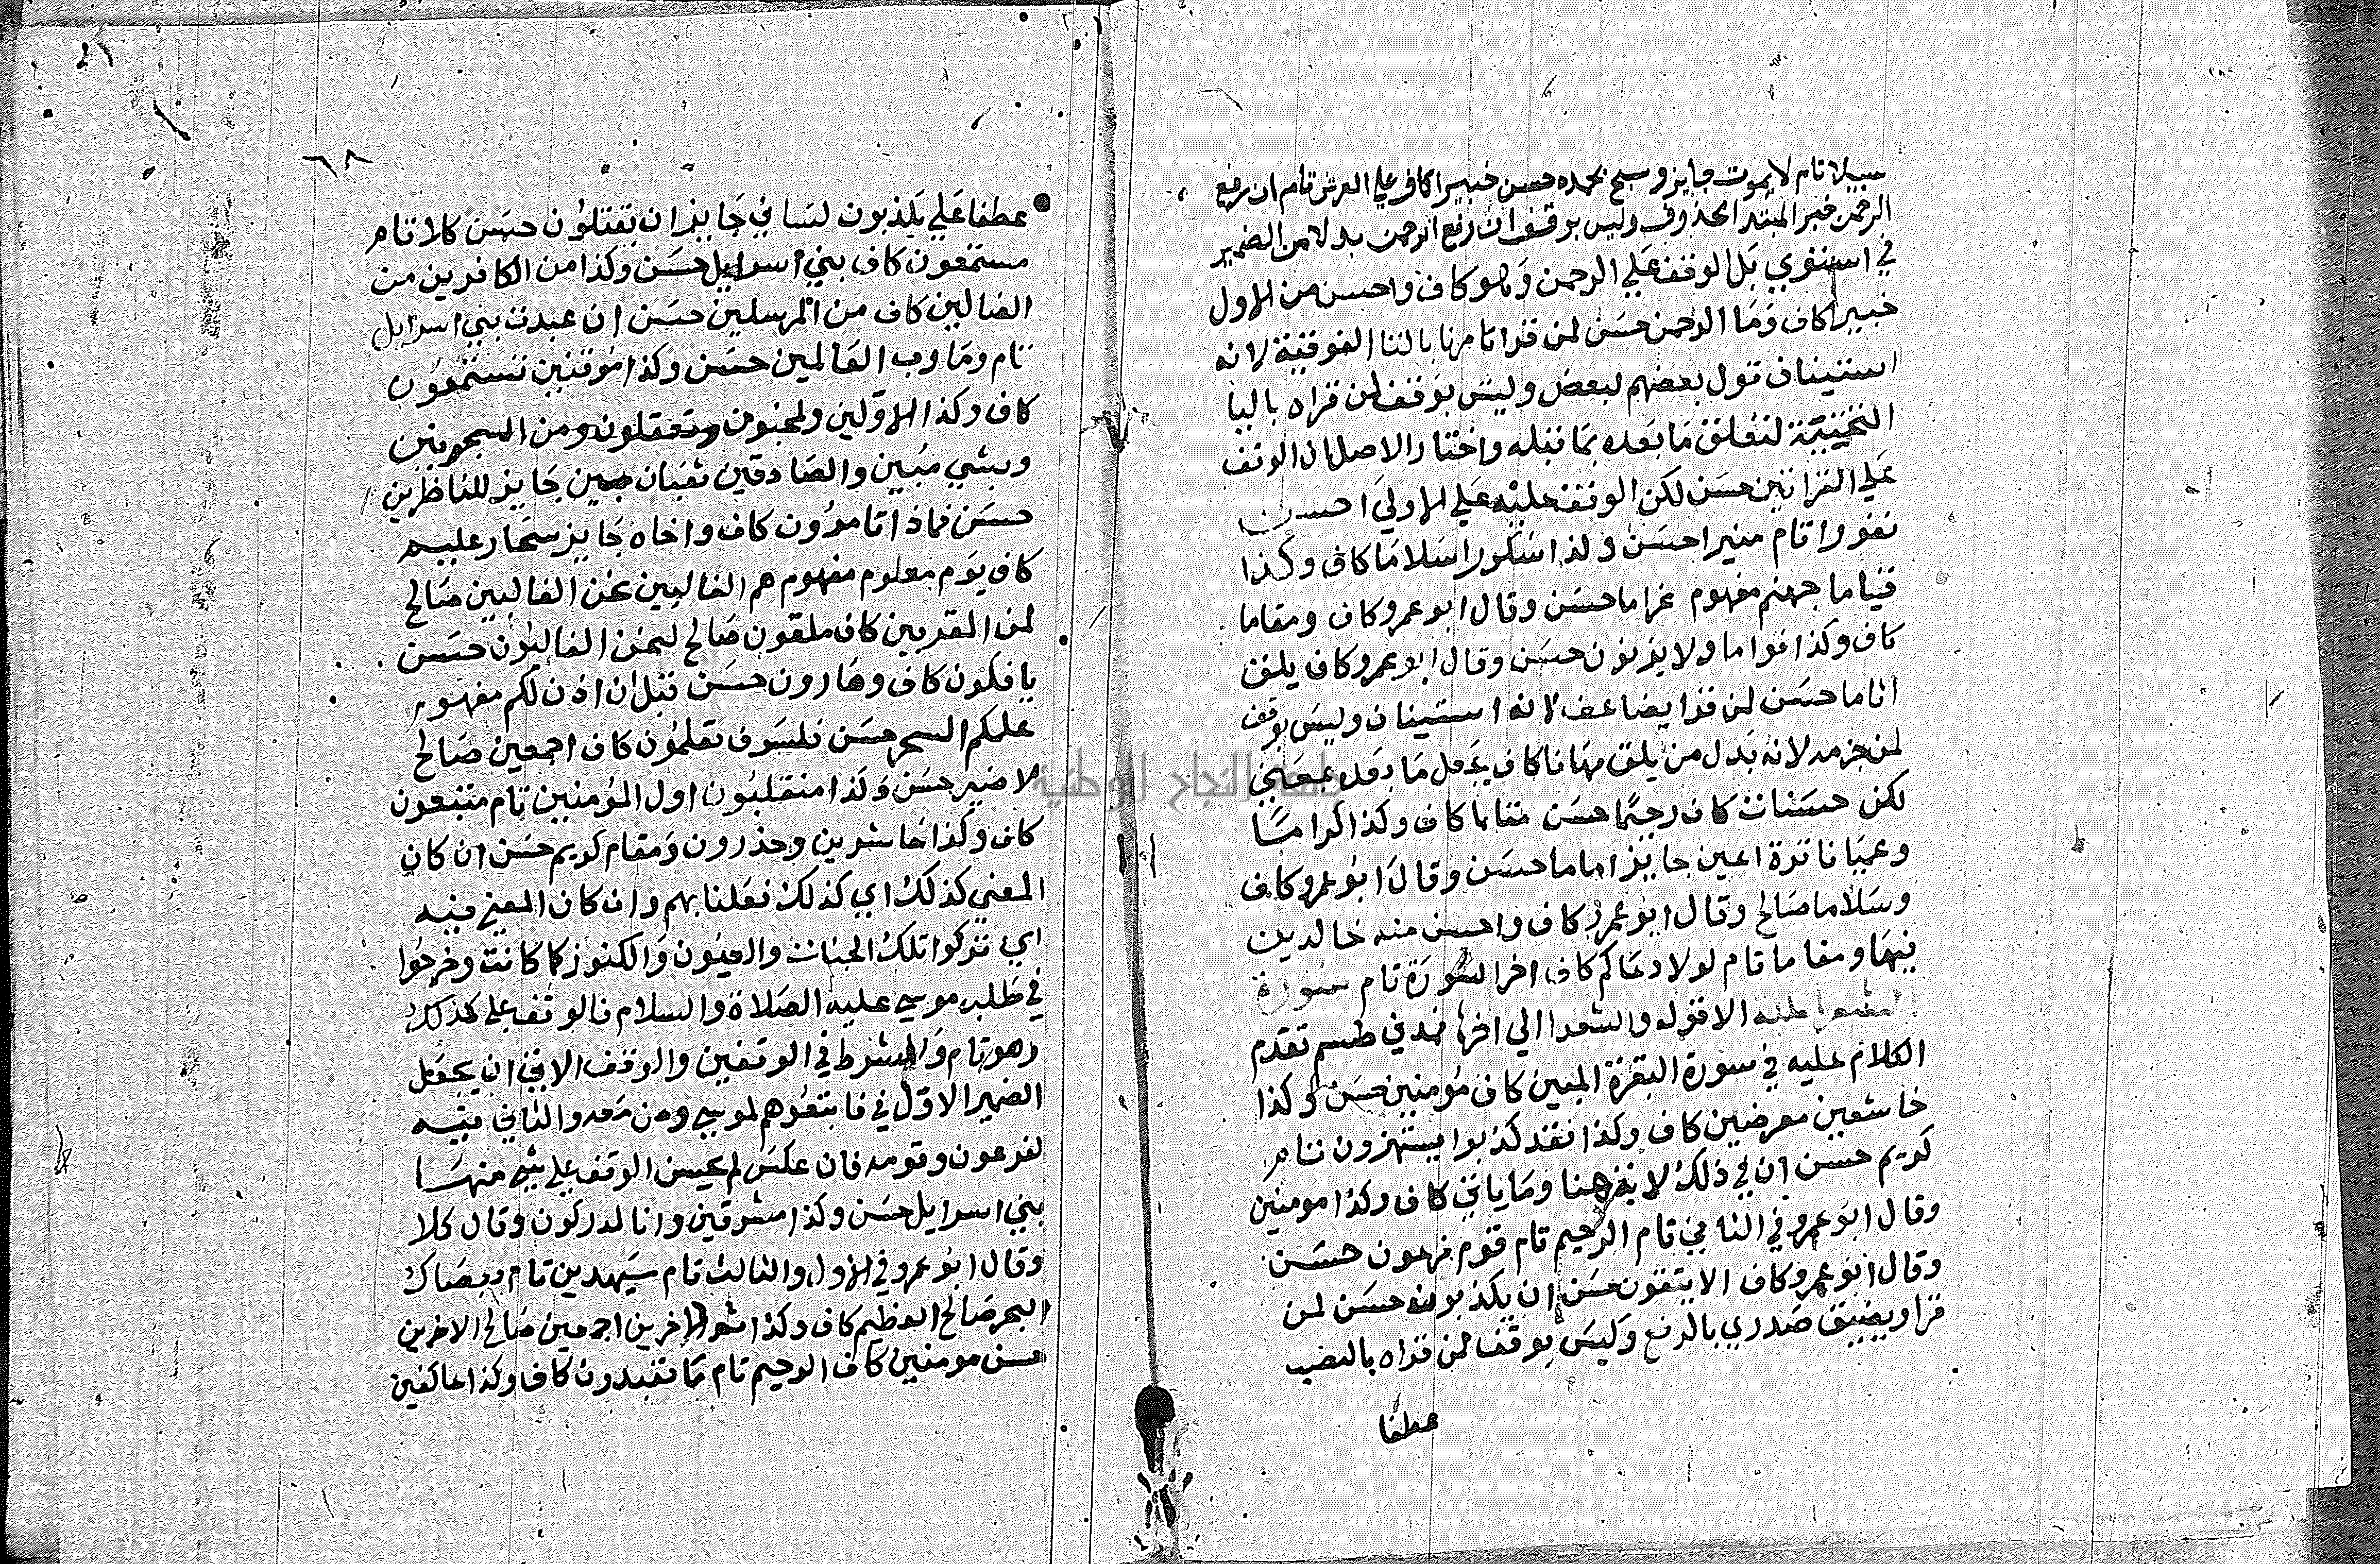 سبيلا تام لا يموت جايز وسبح بحمده حسن خبيرا كاف علي العرش تام ان رفع
الرحمن خبر المبتدا محذوف وليس بوقف ان رفع الرحمن بدلا من الضمير
في استوي بل الوقف علي الرحمن وهو كاف واحسن من الاول
خبيرا كاف وما الرحمن حسن لمن قرا تامرنا بالتا الفوقية لانه
استيناف قول بعضهم لبعض وليس بوقف لمن قراه باليا
التحتية لتعلق ما بعده بما قبله واختار الاصل ان الوقف
علي القراتين حسن لكن الوقف عليه علي الاولي احسن
نفورا تام منيرا حسن وكذا شكورا سلاما كاف وكذا
قياما جهنم مفهوم غراما حسن وقال ابو عمرو كاف ومقاما
كاف وكذا قواما ولا يزنون حسن وقال ابو عمرو كاف يلق
اثاما حسن لمن قرا يضاعف لانه استيناف وليس بوقف
لمن جزمه لانه بدل من يلق مهانا كاف بجعل ما بعده بمعني
لكن حسنات كاف رحيما حسن متابا كاف وكذا كراما
وعميانا قرة اعين جايز اماما حسن وقال ابو عمرو كاف
وسلاما صالح وقال ابو عمرو كاف واحسن منه خالدين
فيها ومقاما تام لولا دعاكم كاف اخر السورة تام سورة
الشعرا مكية الا قوله والشعرا الي اخرها فمدني طسم تقدم
الكلام عليه في سورة البقرة المبين كاف مؤمنين حسن وكذا
خاشعين معرضين كاف وكذا فقد كذبوا يستهزون تام
كريم حسن ان في ذلك لاية هنا وما ياتي كاف وكذا مومنين
وقال ابو عمرو في الثاني تام الرحيم تام قوم فرعون حسن
وقال ابو عمرو كاف الا يتقون حسن ان يكذبون حسن لمن
قرا ويضيق صدري بالرفع وليس بوقف لمن قراه بالنصب
عطفا
٦٨
عطفا علي يكذبون لساني جايز ان يقتلون حسن كلا تام
مستمعون كاف بني اسرايل حسن وكذا من الكافرين من
الضالين كاف من المرسلين حسن ان عبدت بني اسرايل
تام وما رب العالمين حسن وكذا موقنين تستمعون
كاف وكذا الاولين ولمجنون وتعقلون ومن المسجونين
وبشي مبين والصادقين ثعبان مبين جايز للناظرين
حسن فماذا تامرون كاف واخاه جايز سحار عليم
كاف يوم معلوم مفهوم هم الغالبين نحن الغالبين صالح
لمن المقربين كاف ملقون صالح لنحن الغالبون حسن
يافكون كاف وهارون حسن قبل ان اذن لكم مفهوم
علمكم السحر حسن فلسوف تعلمون كاف اجمعين صالح
لا ضير حسن وكذا منقلبون اول المؤمنين تام متبعون
كاف وكذا حاشرين وحذرون ومقام كريم حسن ان كان
المعني كذلك اي كذلك فعلنا بهم وان كان المعني فيه
اي تركوا تلك الجنات والعيون والكنوز كما كانت وخرجوا
في طلب موسي عليه الصلاة والسلام فالوقف علي كذلك
وهو تام والشرط في الوقفين والوقف الاتي ان يجعل
الضمير الاول في فاتبعوهم لموسي ومن معه والثاني فيه
لفرعون وقومه فان عكس لم يحسن الوقف علي شي منها
بني اسرايل حسن وكذا مشرقين وانا لمدركون وقال كلا
وقال ابو عمرو في الاول والثالث تام سيهدين تام وبعصاك
البحر صالح العظيم كاف وكذا ثم الاخرين اجمعين صالح الاخرين
حسن مومنين كاف الرحيم تام ما تعبدون كاف وكذا عاكفين
جامعة النجاح الوطنية